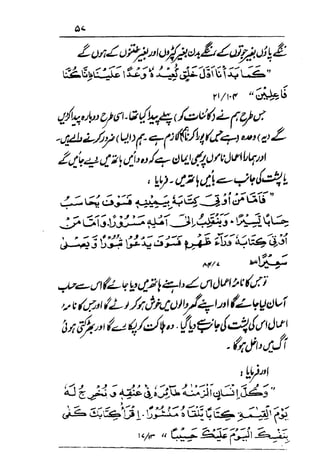 ۵۷
ننگے پاؤں بغیر جوتوں کے ننگے بدن بغیر کپڑوں اور بغیر ختنوں کے ہوں گے
”كَمَا بَدَأْنَا أَوَّلَ خَلْقٍ نُّعِيدُهُ وَعْدًا عَلَيْنَا إِنَّا كُنَّا
فَاعِلِينَ“ ۲۱/۱۰۴
جس طرح ہم نے (کائنات کو) پہلے پیدا کیا تھا۔ اسی طرح دوبارہ پیدا کریں
گے (یہ) وعدہ (ہے جس کا پورا کرنا لازم ہے۔ ہم (ایسا) ضرور کرنے والے ہیں۔
اور ہمارا اعمال ناموں پر بھی ایمان ہے کہ وہ دائیں ہاتھ میں دیے جائیں گے
یا پشت کی جانب سے بائیں ہاتھ میں۔ فرمایا :
”فَأَمَّا مَنْ أُوتِيَ كِتَابَهُ بِيَمِينِهِ فَسَوْفَ يُحَاسَبُ
حِسَابًا يَسِيرًا۔ وَيَنقَلِبُ إِلَى أَهْلِهِ مَسْرُورًا وَأَمَّا مَنْ
أُوتِيَ كِتَابَهُ وَرَاءَ ظَهْرِهِ فَسَوْفَ يَدْعُوا ثُبُورًا وَيَصْلَى
سَعِيرًا“ ۸۴/۷
تو جس کا نامہ اعمال اس کے داہنے ہاتھ میں دیا جائے گا اس سے حساب
آسان لیا جائے گا اور اپنے گھر والوں میں خوش ہو کر لوٹے گا اور جس کا نامہ
اعمال اس کی پشت کی جانب سے دیا گیا۔ وہ ہلاکت کو پکارے گا اور بھڑکتی ہوئی
آگ میں داخل ہوگا۔
اور فرمایا :
”وَكُلَّ إِنسَانٍ أَلْزَمْنَاهُ طَائِرَهُ فِي عُنُقِهِ وَنُخْرِجُ لَهُ
يَوْمَ الْقِيَامَةِ كِتَابًا يَلْقَاهُ مَنشُورًا۔ اقْرَأْ كِتَابَكَ كَفَى
بِنَفْسِكَ الْيَوْمَ عَلَيْكَ حَسِيبًا“ ۱۷/۱۳